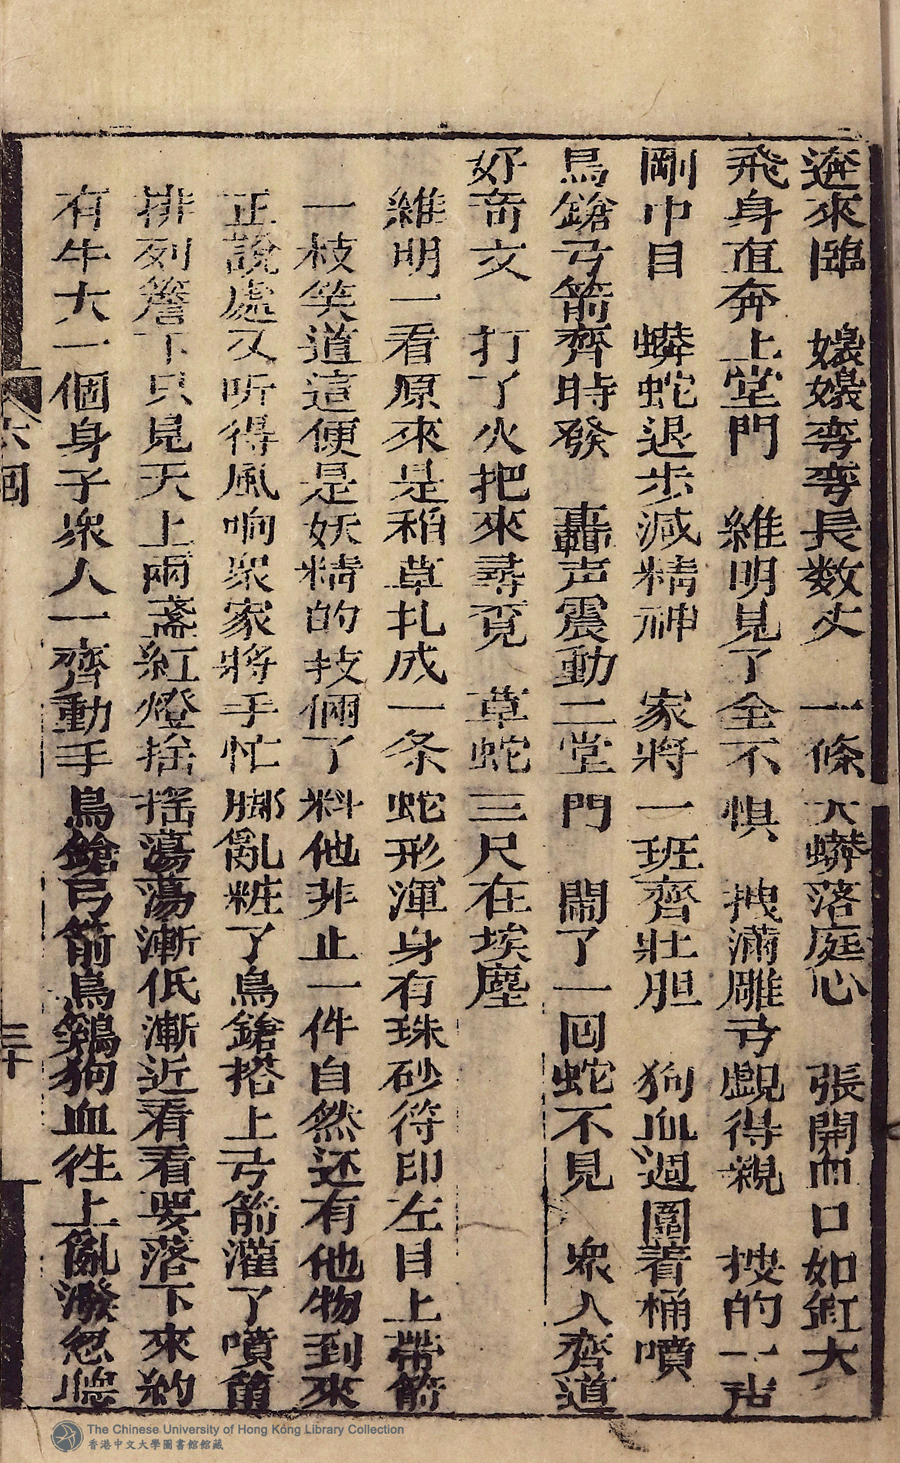 遊來臨　嬝嬝弯弯長数丈　一條大蟒落庭心　張開血口如缸大
飛身直奔上堂門　維明見了全不惧　拽滿雕弓覷得親　搜的一声
剛中目　蟒蛇退步減精神　家將一班齊壯胆　狗血週圍着桶噴
鳥鎗弓箭齊時發　轟声震動二堂門　鬧了一囘蛇不見　衆人齊道
好奇文　打了火把來尋覓　草蛇三尺在埃塵
維明一看原來是稻草扎成一条蛇形渾身有珠砂符印左目上帶箭
一枝笑道這便是妖精的技倆了料他非止一件自然还有他物到來
正說處又听得風响衆家將手忙脚亂粧了鳥鎗搭上弓箭灌了噴筩
排列簷下只見天上兩盞紅燈摇摇蕩蕩漸低漸近看看要落下來約
有牛大一個身子衆人一齊動手鳥鎗弓箭烏鷄狗血徃上亂潑忽聽
六囘
三十
The Chinese University of Hong Kong Library Collection
香港中文大學圖書館館藏